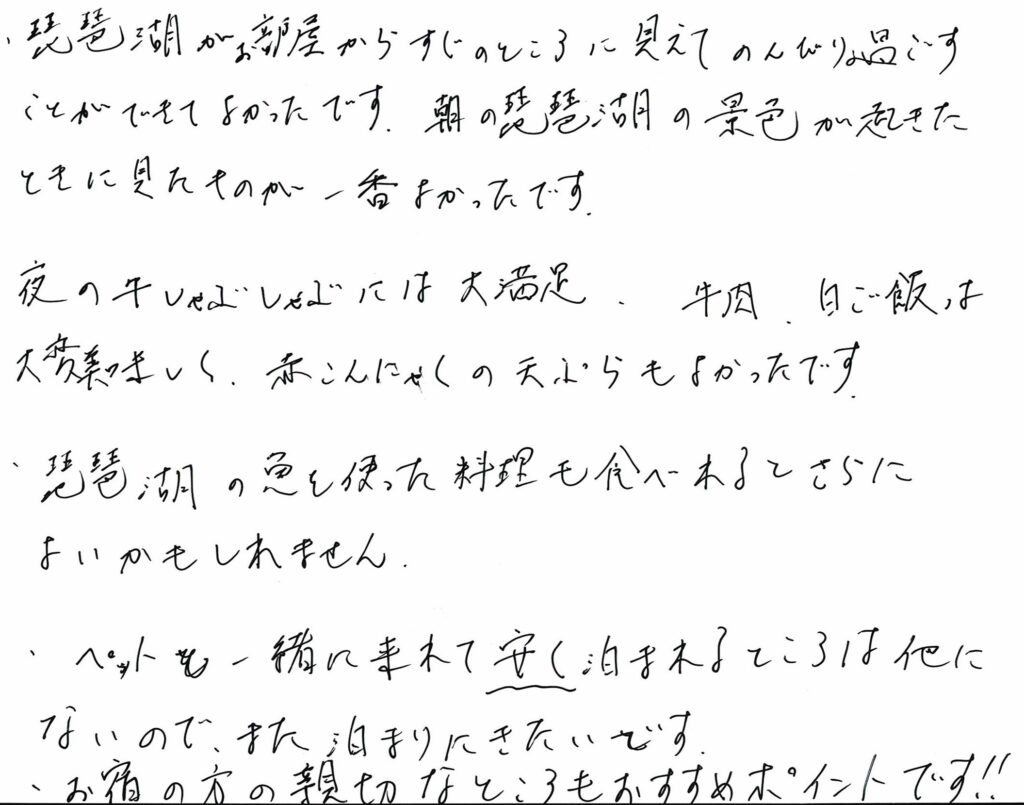 ・琵琶湖がお部屋からすぐのところに見えてのんびり過ごす
ことができてよかったです.朝の琵琶湖の景色が起きた
ときに見たものが一番よかったです.
夜の牛しゃぶしゃぶには大満足.牛肉、白ご飯は
大変美味しく、赤こんにゃくの天ぷらもよかったです.
・琵琶湖の魚を使った料理も食べれるとさらに
よいかもしれません.
・ペットも一緒に来れて安く泊まれるところは他に
ないので、また泊まりにきたいです.
・お宿の方の親切なところもおすすめポイントです!!